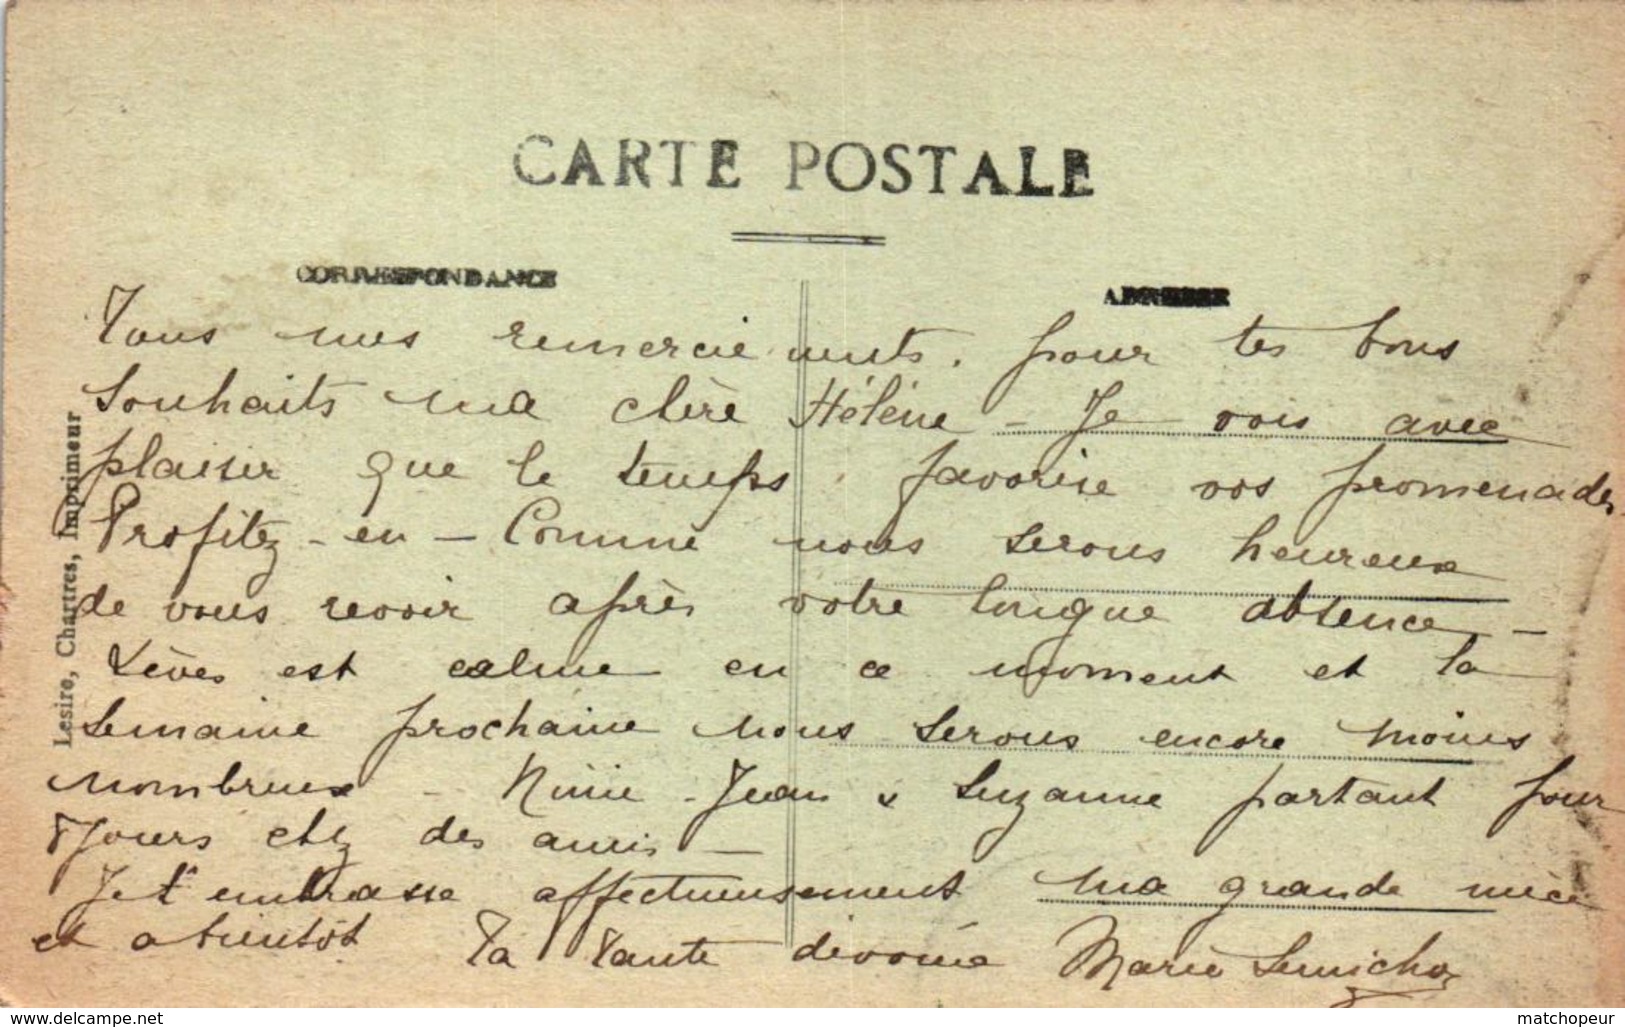 CARTE POSTALE
CORRESPONDANCE
ADRESSE
Tous mes remerciements. pour tes bons
souhaits ma chère Hélène - Je vois avec
plaisir que le temps favorise vos promenades -
Profitez-en - Comme nous serons heureux
de vous revoir après votre longue absence -
Lèves est calme en ce moment et la
semaine prochaine nous serons encore moins
nombreux - Ninie - Jean & Suzanne partant pour
8 jours chez des amis -
Je t'embrasse affectueusement ma grande nièce
et a bientôt Ta Tante dévouée Marie
Lesire, Chartres, Imprimeur
www.delcampe.net
matchopeur